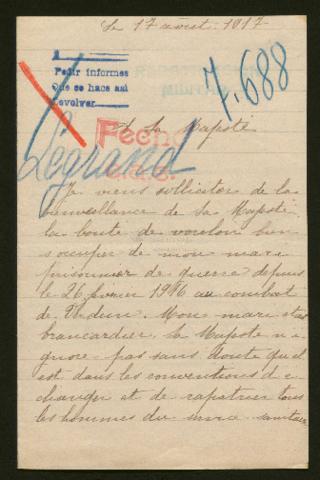 Le 17 aout. 1917
A
Pedir informes
Que se haca asi
Devolver
7.688
A Sa Majesté
Fecho
Legrand
Je viens solliciter de la
bienveillance de Sa Majesté
la bonte de vouloir bien
s'occuper de mon mari
prisonnier de guerre depuis
le 26 fevrier 1916 au combat
de Verdun. Mon mari etait
brancardier Sa Majeste n'i
gnore pas sans doute qu'il
est dans les conventions d'e
changer et de rapatrier tous
les hommes du service sanitaire